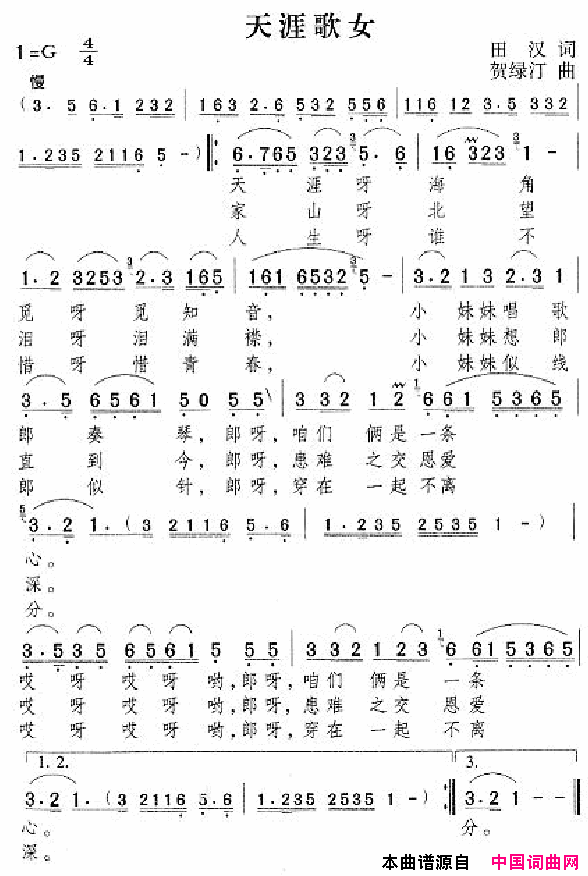 天涯歌女
1=G 4/4
田汉 词
贺绿汀 曲
慢
(3. 5 6.1 232 | 163 2.6 532 556 | 116 12 3.5 332 |
1.235 2116 5 -) |: 6.765 323 5. 6 | 16 323 1 - |
天 涯 呀 海 角
家 山 呀 北 望
人 生 呀 谁 不
1. 2 3253 2.3 165 | 161 6532 5 - | 3.2 1 3 2.3 1 |
觅 呀 觅 知 音, 小 妹妹唱 歌
泪 呀 泪 满 襟, 小 妹妹想 郎
惜 呀 惜 青 春, 小 妹妹似 线
3. 5 6561 50 55 | 332 123 12 | 661 5365 |
郎 奏 琴, 郎呀, 咱们 俩是一条
直 到 今, 郎呀, 患难 之交恩爱
郎 似 针, 郎呀, 穿在 一起不离
3.2 1. (3 2116 5.6 | 1.235 2535 1 -) |
心。
深。
分。
3.535 6561 5 55 | 332 123 | 6 61 5365 |
哎 呀 哎 呀 哟, 郎呀, 咱们 俩是 一 条
哎 呀 哎 呀 哟, 郎呀, 患难 之交 恩爱
哎 呀 哎 呀 哟, 郎呀, 穿在 一起 不离
1. 2. 3.
3.2 1. (3 2116 5.6 | 1.235 2535 1 -) :| 3.2 1 - - |
心。 分。
深。
本曲谱源自 中国词曲网